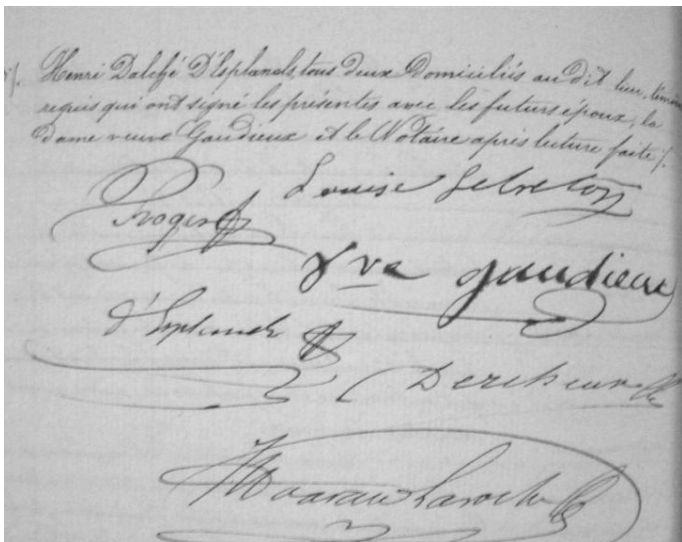 Henri Dalché D'Esplanels, tous deux domiciliés au dit lieu, témoins
requis qui ont signé les présentes avec les futurs époux, la
dame veuve Gaudieux et le Notaire après lecture faite /.
Louise Lebreton
Roger
Vve gaudieux
d'Esplanels